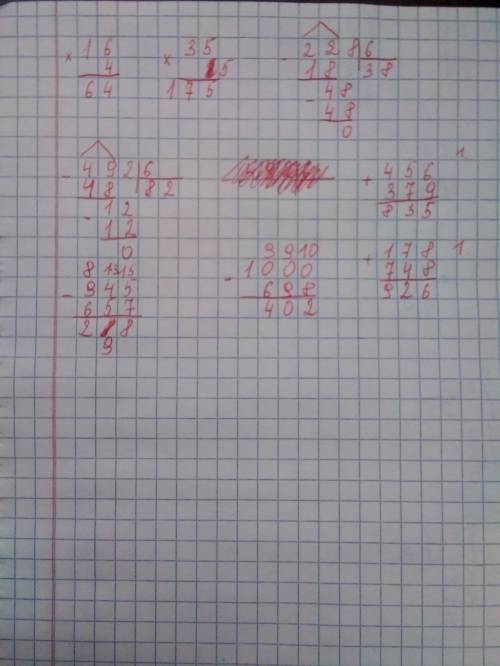 × 16
4
64
× 35
5
175
- 228 6
18 38
- 48
48
0
- 492 6
48 82
- 12
12
0
1
+ 456
379
835
8 13 15
- 945
657
2 8
9
9 9 10
- 1000
698
402
1
+ 178
748
926